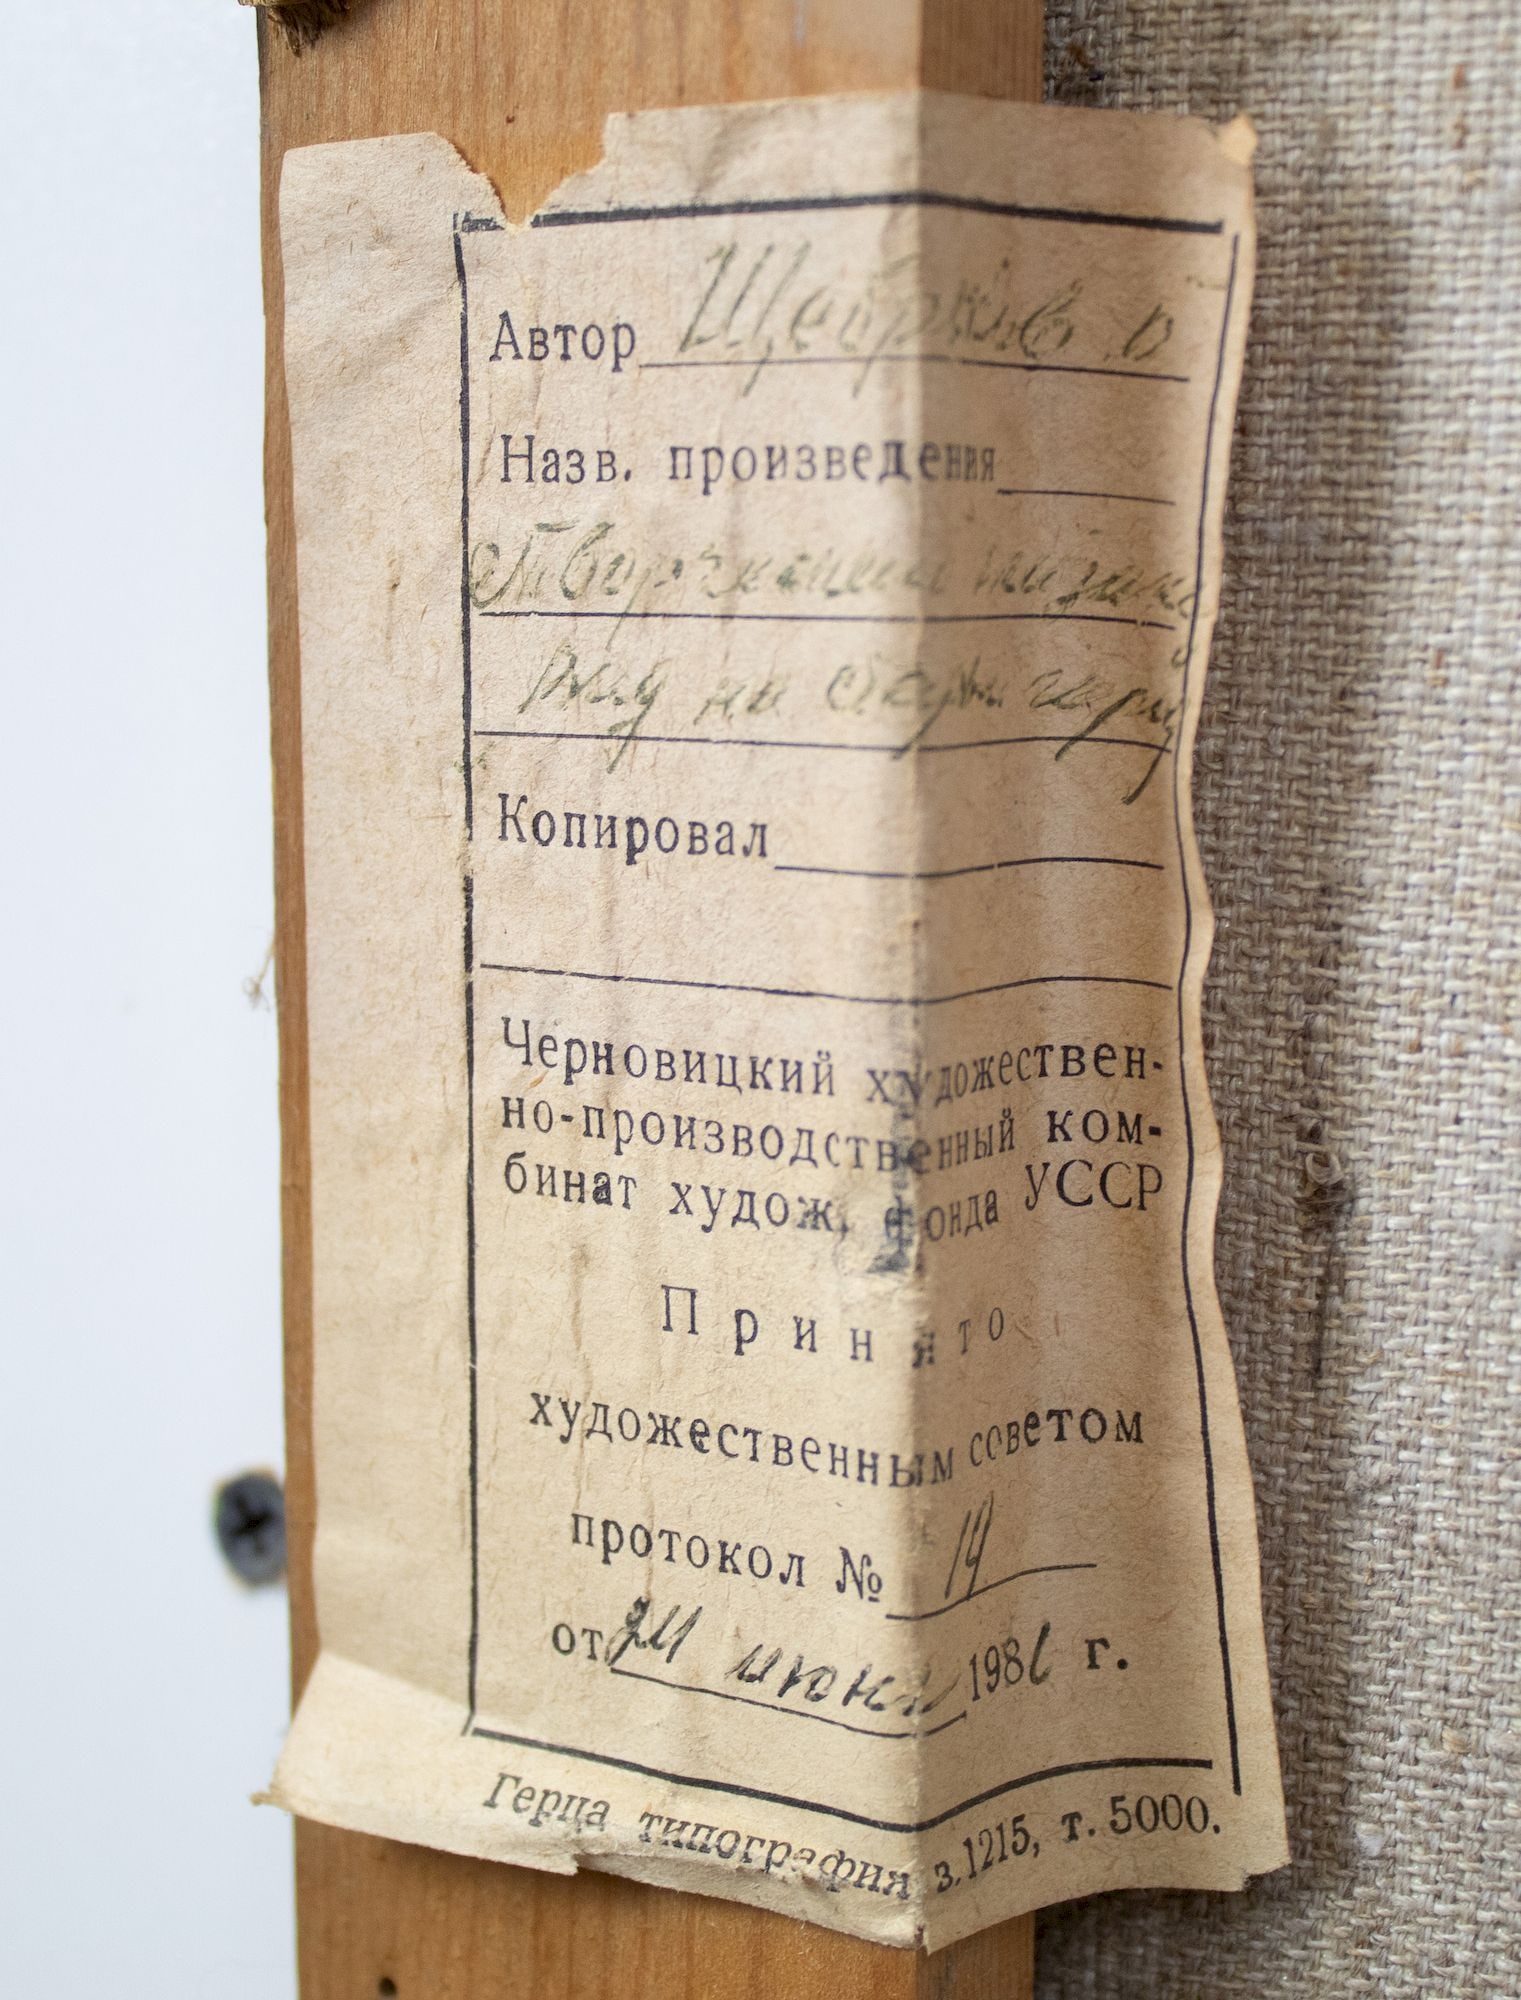 Автор
Назв. произведения
на
Копировал
Черновицкий художествен-
но-производственный ком-
бинат худож. фонда УССР
Принято
художественным советом
протокол № 14
от 24 июня 1981 г.
Герца типография з.1215, т. 5000.